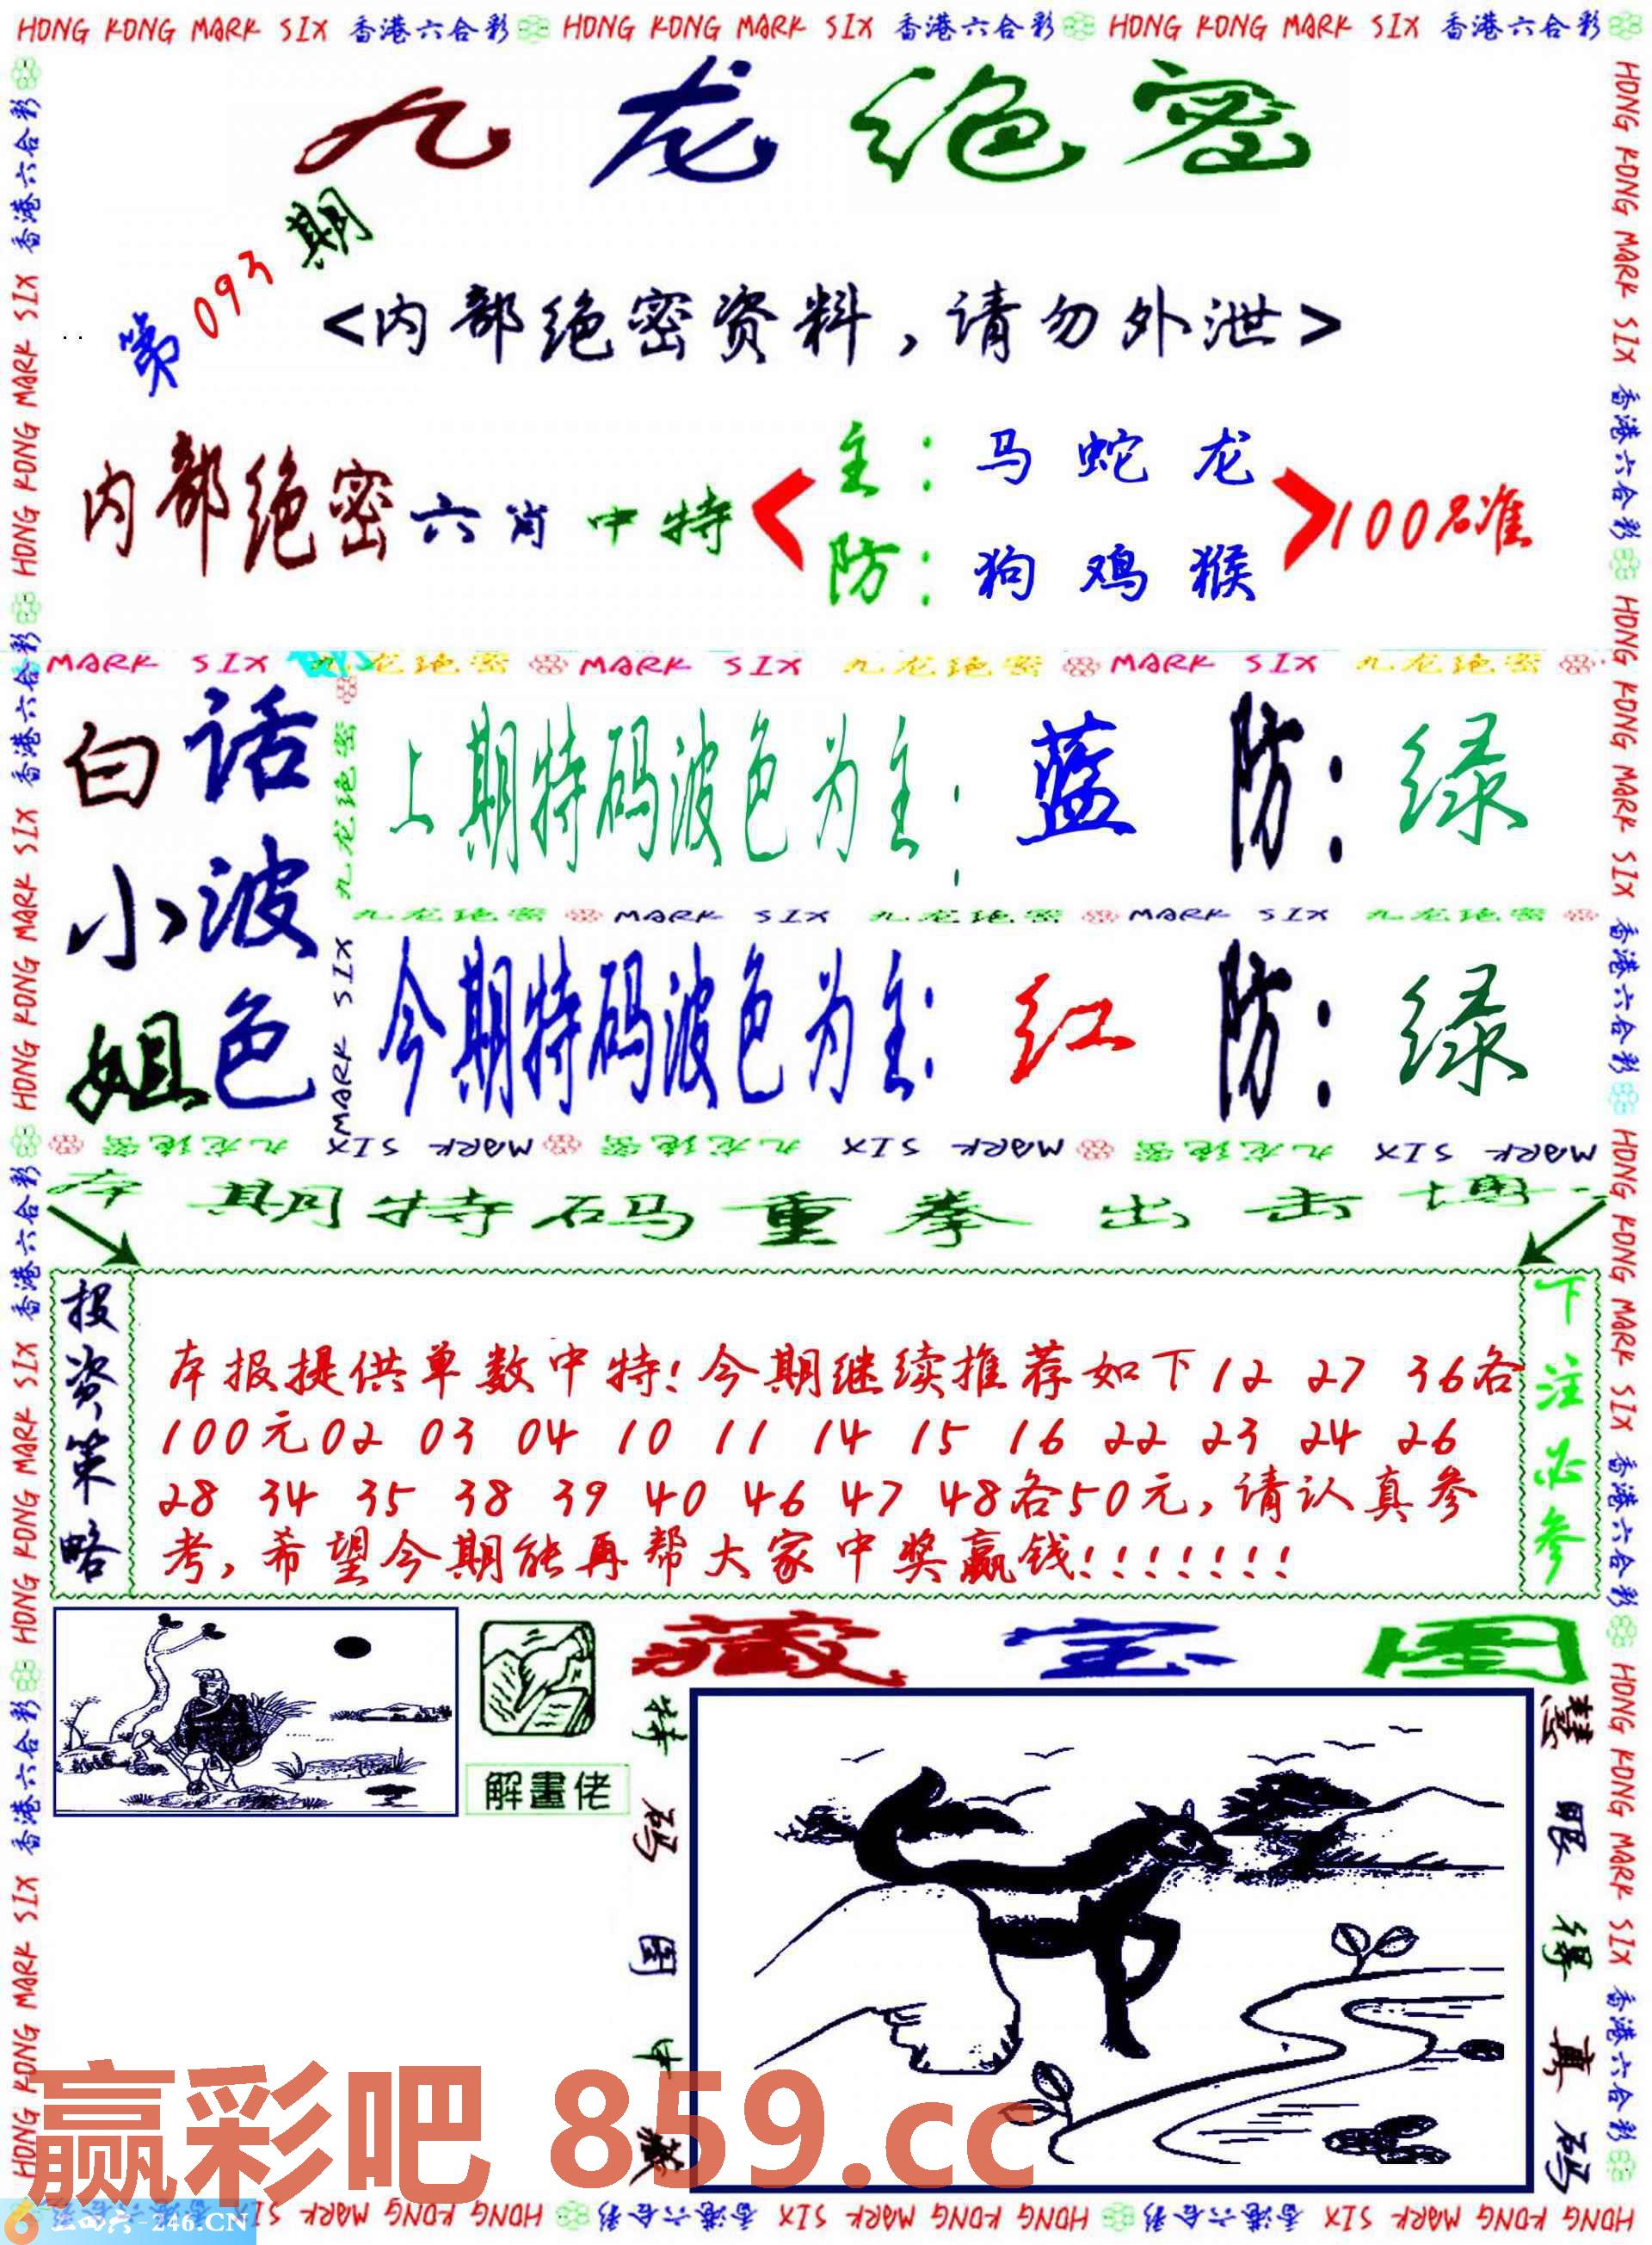 HONG KONG MARK SIX 香港六合彩 HONG KONG MARK SIX 香港六合彩 HONG KONG MARK SIX 香港六合彩
九龙绝密
第093期
<内部绝密资料,请勿外泄>
内部绝密六肖中特
主:马蛇龙
防:狗鸡猴
100%准
MARK SIX 九龙绝密 MARK SIX 九龙绝密 MARK SIX 九龙绝密
白话
小波
姐色
上期特码波色为主:蓝 防:绿
九龙绝密 MARK SIX 九龙绝密 MARK SIX 九龙绝密
今期特码波色为主:红 防:绿
九龙绝密 MARK SIX 九龙绝密 MARK SIX 九龙绝密 MARK SIX
本期特码重拳出击博
投资策略
本报提供单数中特!今期继续推荐如下12 27 36各
100元02 03 04 10 11 14 15 16 22 23 24 26
28 34 35 38 39 40 46 47 48各50元,请认真参
考,希望今期能再帮大家中奖赢钱!!!!!!!
下注必参
解畫佬
藏宝图
特码图中藏
慧眼得真码
赢彩吧 859.cc
246.CN
HONG KONG MARK SIX 香港六合彩 HONG KONG MARK SIX 香港六合彩 HONG KONG MARK SIX